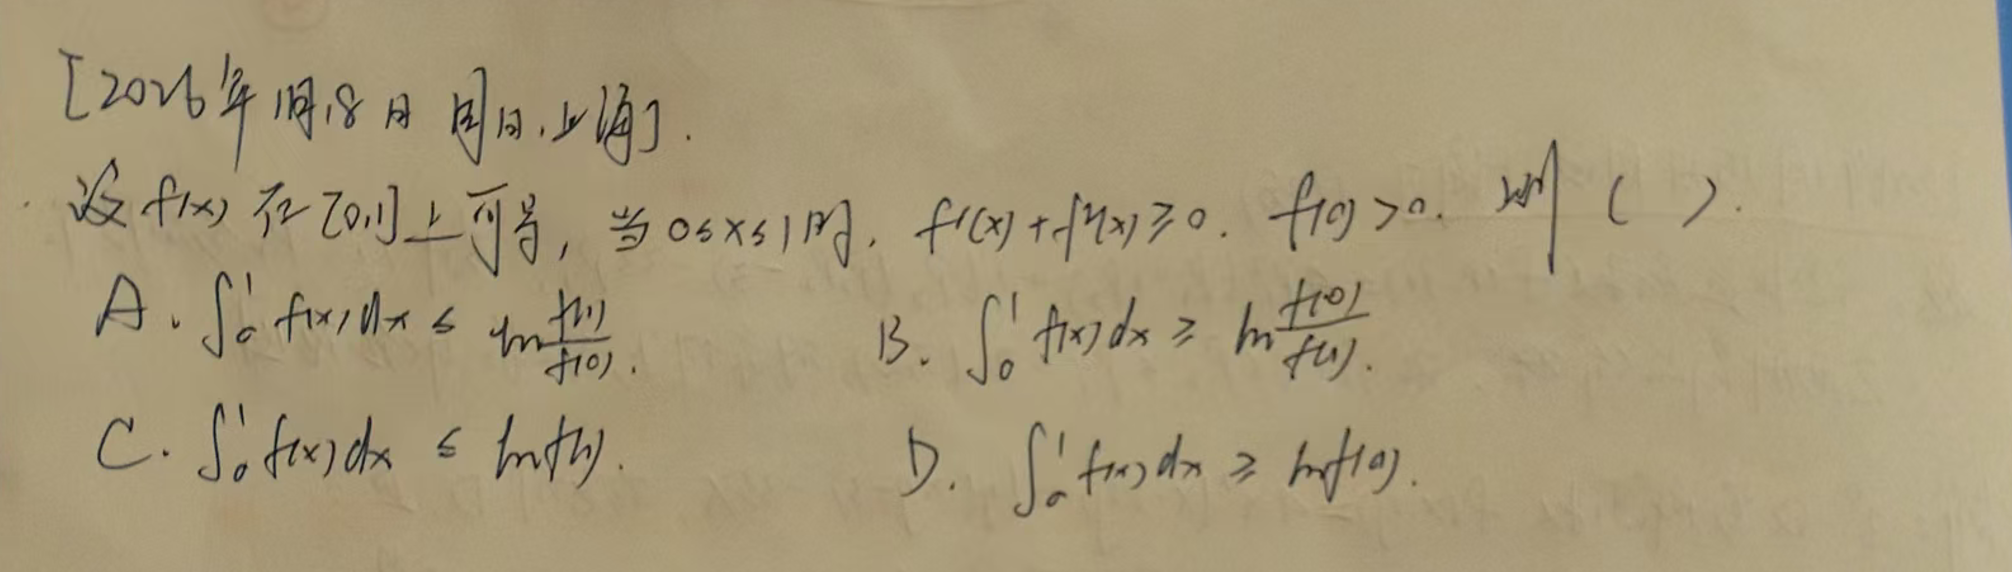 [2026年1月18日 周日.上海].
设 f(x) 在 [0,1] 上可导, 当 0≤x≤1 时. f'(x)+f²(x)≥0. f(0)>0. 则 ( ).
A. ∫₀¹ f(x)dx ≤ ln f(1)/f(0). B. ∫₀¹ f(x)dx ≥ ln f(0)/f(1).
C. ∫₀¹ f(x)dx ≤ ln f(1). D. ∫₀¹ f(x)dx ≥ ln f(0).